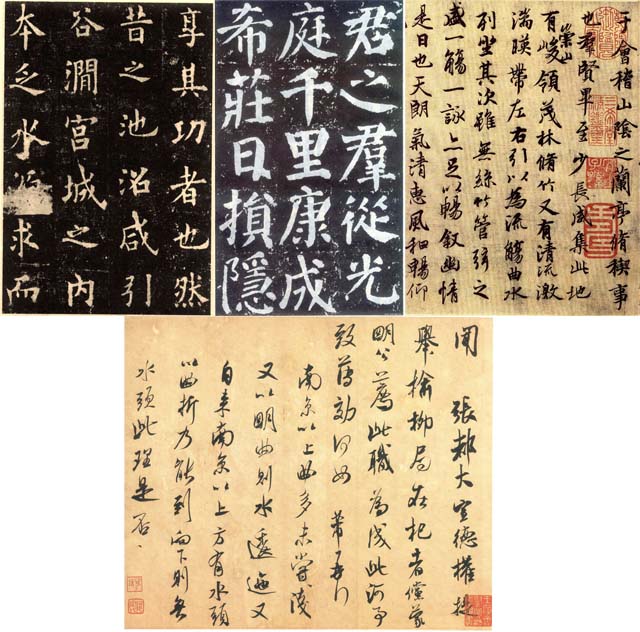 享其功者也然
昔之池沼咸引
谷澗宮城之內
本乏水源求而
君之羣從光
庭千里康成
希莊日損隱
于會稽山陰之蘭亭脩稧事
也羣賢畢至少長咸集此地
有崇山峻領茂林脩竹又有清流激
湍暎帶左右引以為流觴曲水
列坐其次雖無絲竹管弦之
盛一觴一詠亦足以暢叙幽情
是日也天朗氣清惠風和暢仰
聞 張都大宣德權提
舉榆柳局在杞者儻蒙
明公薦此職為成此河事
致薄效何如 芾再拜
南京以上曲多未嘗淺
又以明曲則水逶迤又
自來南京以上方有水頭
以曲折乃能到向下則無
水頭此理是否、